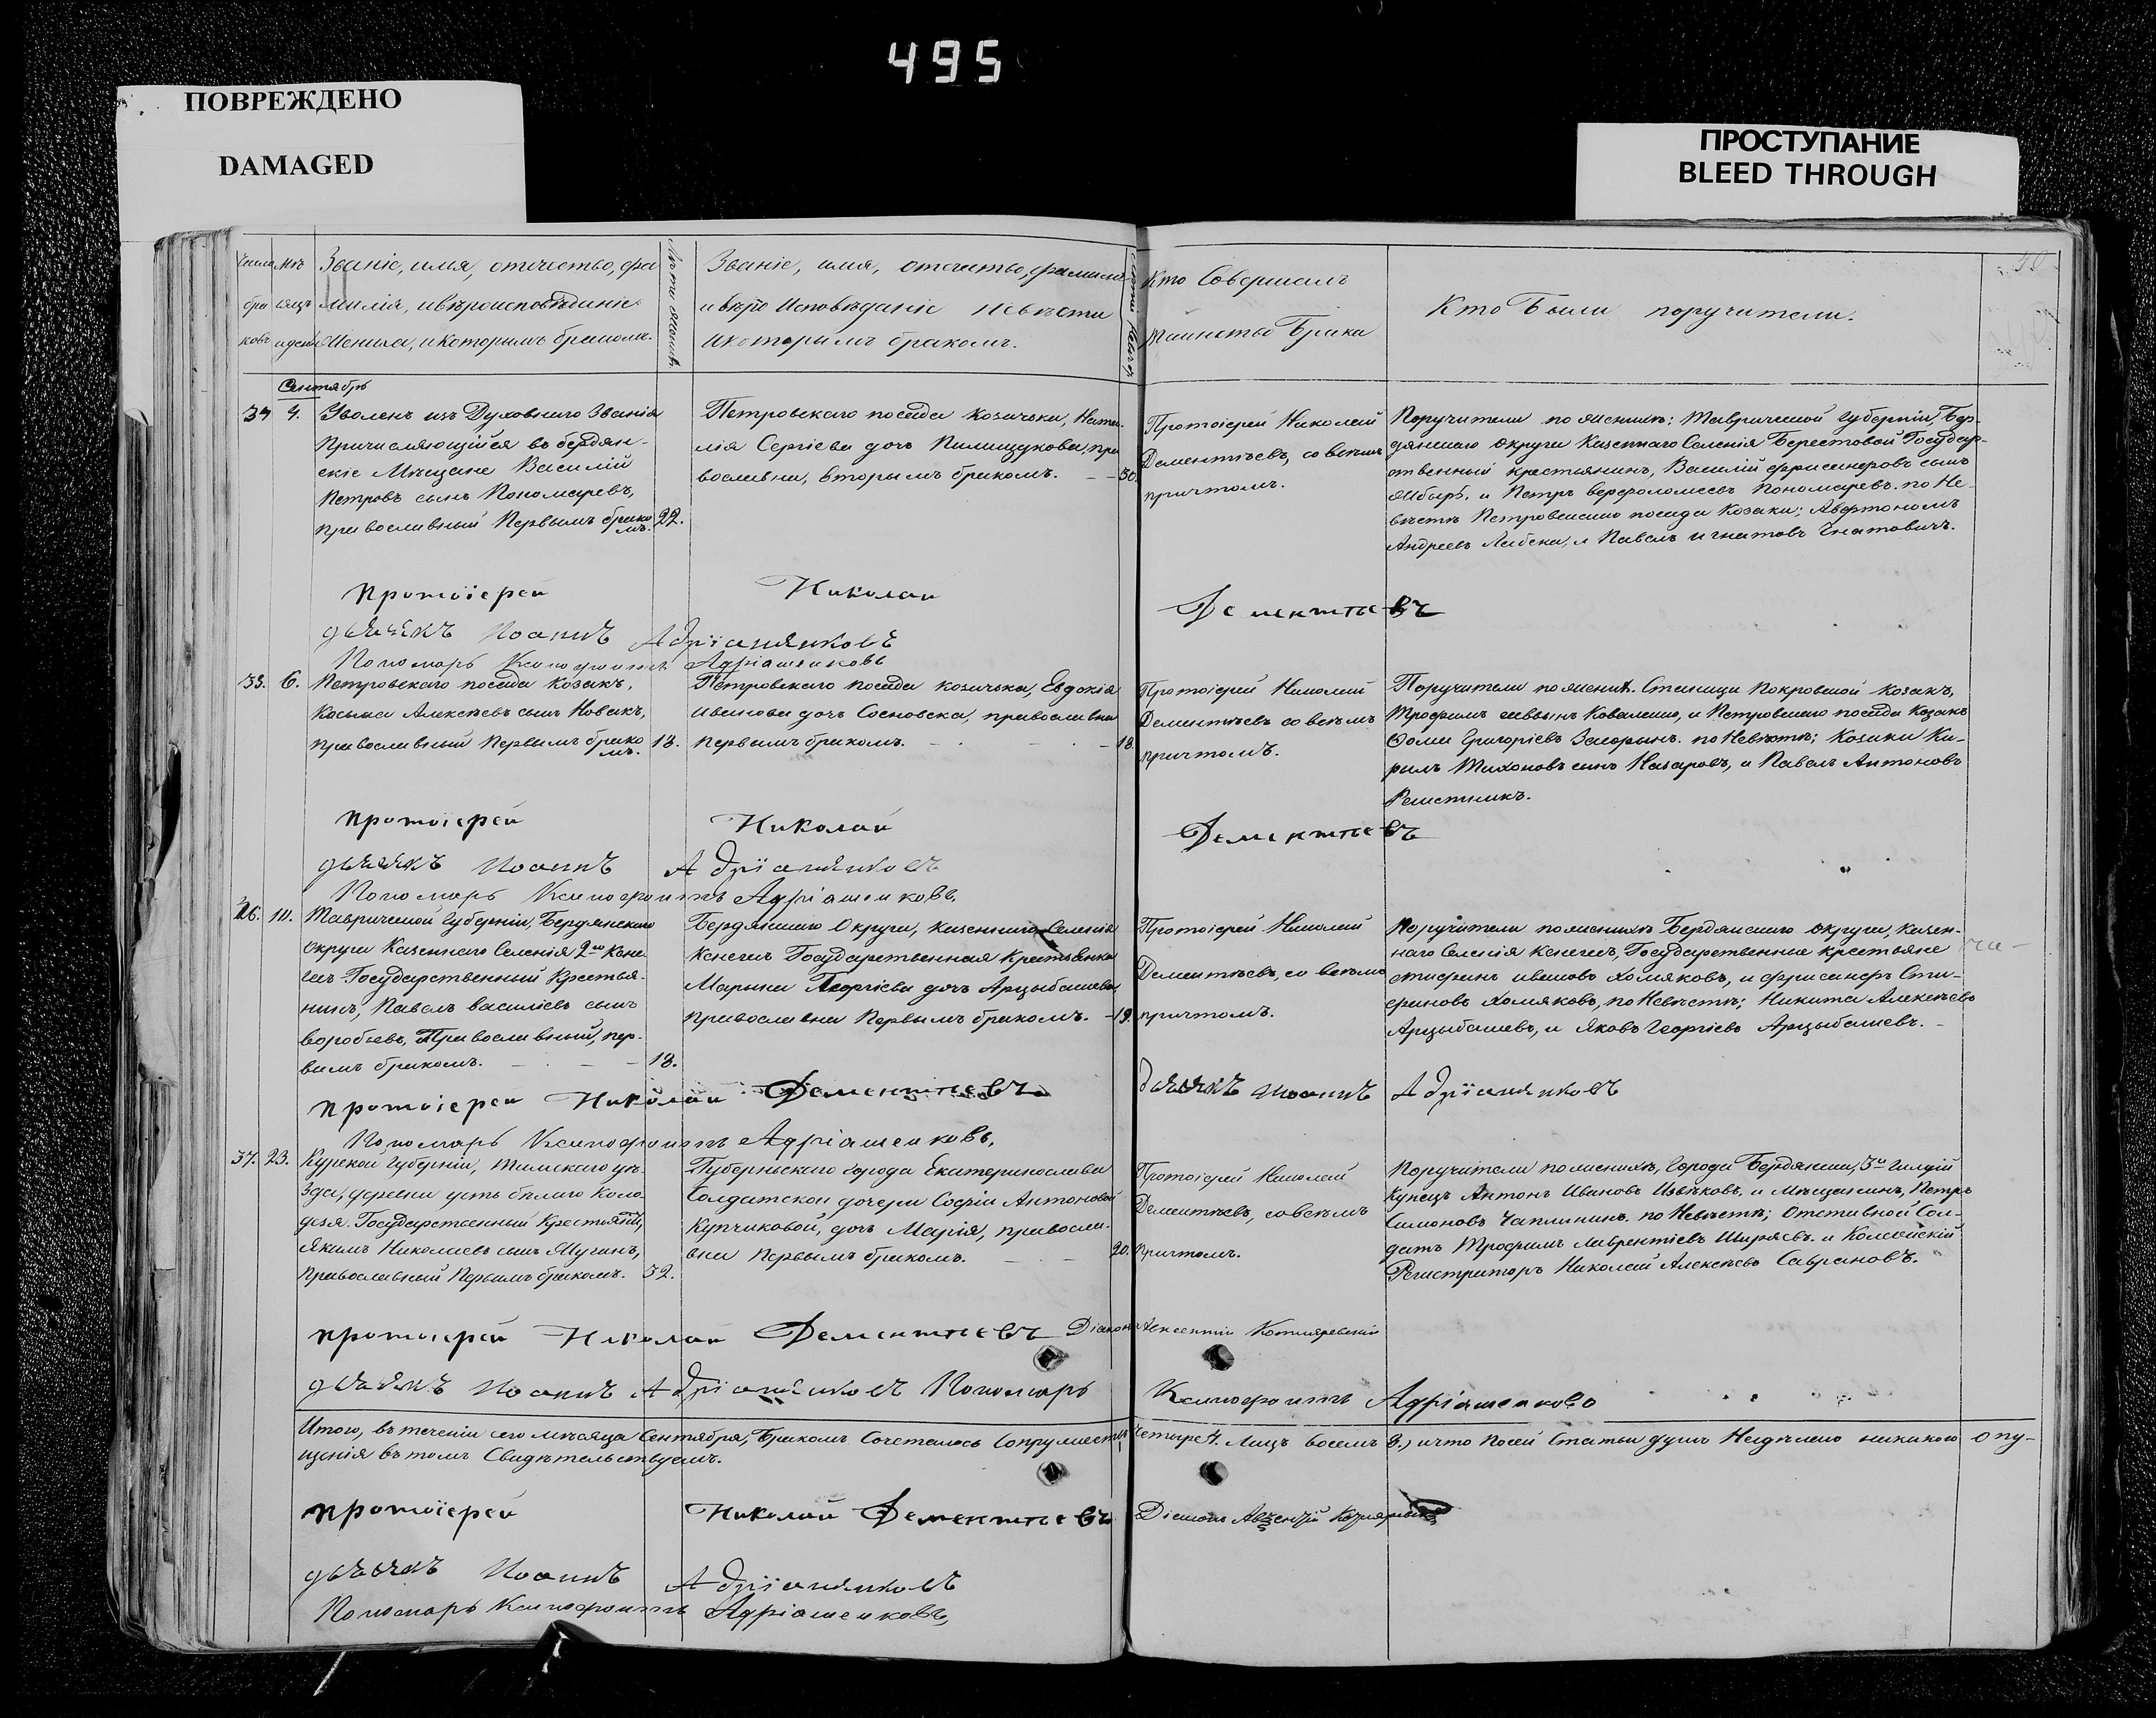 495
ПОВРЕЖДЕНО
DAMAGED
ПРОСТУПАНИЕ
BLEED THROUGH
Числа бра ковъ
мѣ сяцъ и день
Званіе, имя, отечество, фа
милія, ивѣроисповѣданіе
Жениха, икоторымъ бракомъ.
Лѣта жениха
Званіе, имя, отечество, фамилія
ивѣро Исповѣданіе невѣсты
икоторымъ бракомъ.
Лѣта невѣсты
Кто Совершалъ
таинство Брака
Кто Были поручители.
Сентябрь
34 4. Уволенъ изъ Духовнаго Званія
Причисляющійся въ бердян-
скіе Мѣщане Василій
Петровъ сынъ Пономаревъ,
православный Первымъ брако
мъ. 22.
Петровскаго посада козачька, Ната-
лія Сергіева дочъ Пилищукова, пра
вославна, вторымъ бракомъ. — 30.
Протоіерей Николай
Дементѣевъ, совсѣмъ
причтомъ.
Поручители по женихѣ: Таврической губерніи, Бер-
дянскаго округа Казеннаго Селенія Берестовой Государ-
ственный крестьянинъ, Василій
и Петръ верфоломеевъ Пономаревъ. по Не-
вѣстѣ Петровскаго посада Козаки; Авфтономъ
Андреевъ и Павелъ игнатовъ Гнатовичъ.
Протоіерей Николай Дементьевъ
дьячекъ Иоаннъ Адріаненковъ
Пономарь Ксинофонтъ Адріаненковъ
35. 6. Петровскаго посада Козакъ,
Косьма Алексѣевъ сынъ Новакъ,
православный Первымъ брако
мъ. 18.
Петровскаго посада козачька, Евдокія
иванова дочъ Сосновска, православна
первымъ бракомъ. — 18.
Протоіерей Николай
Дементѣевъ совсѣмъ
причтомъ.
Поручители по женихѣ. Станицы Покровской козакъ,
Трофимъ саввынъ Коваленко, и Петровскаго посада Козакъ
Ѳома Григоріевъ по Невѣстѣ; Козаки Ки-
рилъ Тихоновъ сынъ Назаровъ, и Павелъ Антоновъ
Решетникъ.
Протоіерей Николай Дементьевъ
дьячекъ Иоаннъ Адріаненковъ
Пономарь Ксинофонтъ Адріаненковъ.
36. 10. Таврической Губерніи, Бердянскаго
Округа Казеннаго Селенія 2го Кене-
гезъ Государственный Крестья-
нинъ, Павелъ василіевъ сынъ
воробьевъ, Православный, пер-
вымъ бракомъ. — 18.
Бердянскаго Округа, казеннаго Селенія
Кенегезъ Государственная Крестьянка
Марына Георгіева дочъ Арцыбашева,
православна Первымъ бракомъ. — 19.
Протоіерей Николай
Дементѣевъ, со всѣмъ
причтомъ.
Поручители по женихѣ Бердянскаго округа, казен-
наго Селенія Кенегезъ, Государственные крестьяне
стефанъ ивановъ Хомяковъ, и Сте-
фановъ Хомяковъ, по Невѣстѣ; Никита Алексѣевъ
Арцыбашевъ, и Яковъ Георгіевъ Арцыбашевъ.
Протоіерей Николай Дементьевъ дьячекъ Иоаннъ Адріаненковъ
Пономарь Ксинофонтъ Адріаненковъ.
37. 23. Курской Губерніи, Тимскаго уѣ-
зда, деревни усть бѣлаго Коло-
дезя. Государственный Крестьянинъ,
Якимъ Николаевъ сынъ
Православный Первымъ бракомъ. 32.
Губернскаго города Екатеринослава
Солдатской дочери Софіи Антоновой
Купчиковой, дочъ Марія, правосла-
вна Первымъ бракомъ. — 20.
Протоіерей Николай
Дементѣевъ, совсѣмъ
Причтомъ.
Поручители по женихѣ, Города Бердянска, 3й гильдіи
Купецъ Антонъ Ивановъ Извѣковъ, и Мѣщанинъ, Петръ
Симоновъ Чаплининъ. по Невѣстѣ; Отставной Сол-
датъ Трофимъ лаврентіевъ Ширяевъ. и Колежскій
Регистраторъ Николай Алексѣевъ Сапрановъ.
Протоіерей Николай Дементьевъ Діаконъ Авксентій Котляревскій
дьячекъ Иоаннъ Адріаненковъ Пономарь Ксинофонтъ Адріаненковъ
Итого, въ теченіи сего мѣсяца Сентября, Бракомъ Сочеталось Супружествъ Четыре 4. Лицъ восемъ 8.) ичто посей Статьи душъ Несдѣлано никакого опу-
щенія въ томъ Свидѣтельствуемъ.
Протоіерей Николай Дементьевъ Діаконъ Авксентій Котляревскій
дьячекъ Иоаннъ Адріаненковъ
Пономарь Ксинофонтъ Адріаненковъ,